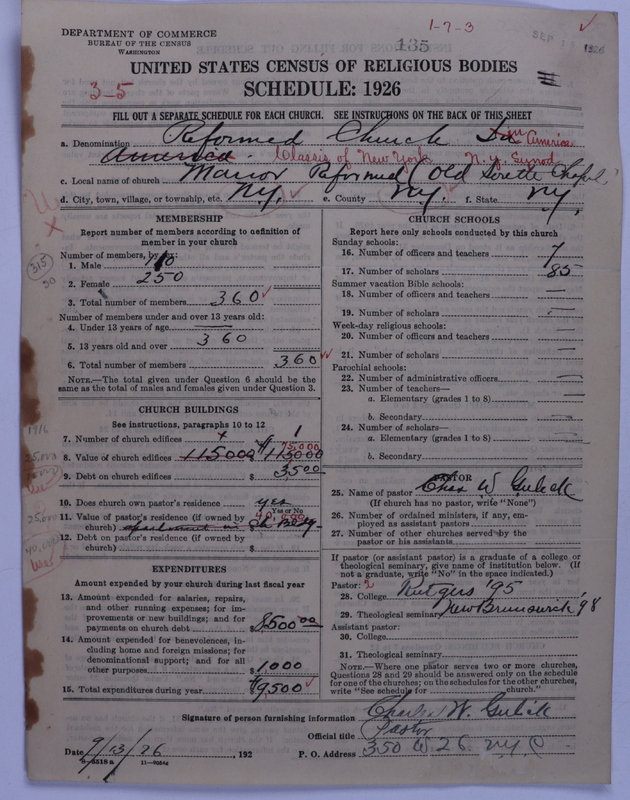 DEPARTMENT OF COMMERCE
BUREAU OF THE CENSUS
WASHINGTON
1-7-3
135
SEP 1926
UNITED STATES CENSUS OF RELIGIOUS BODIES
3-5
SCHEDULE: 1926
FILL OUT A SEPARATE SCHEDULE FOR EACH CHURCH. SEE INSTRUCTIONS ON THE BACK OF THIS SHEET
a. Denomination Reformed Church In America
America Classis of New York N.Y. Synod
c. Local name of church Manor Reformed (Old Chapel)
d. City, town, village, or township, etc. N.Y. e. County N.Y. f. State N.Y.
MEMBERSHIP
Report number of members according to definition of
member in your church
Number of members, by sex:
1. Male 110
2. Female 250
3. Total number of members 360
Number of members under and over 13 years old:
4. Under 13 years of age
5. 13 years old and over 360
6. Total number of members 360
NOTE.—The total given under Question 6 should be the
same as the total of males and females given under Question 3.
CHURCH BUILDINGS
See instructions, paragraphs 10 to 12
7. Number of church edifices 1
75,000
8. Value of church edifices 115000 $113000
9. Debt on church edifices $3500
10. Does church own pastor's residence yes
Yes or No
11. Value of pastor's residence (if owned by
church) apartment in Ch Bldg. $
12. Debt on pastor's residence (if owned by
church) $
EXPENDITURES
Amount expended by your church during last fiscal year
13. Amount expended for salaries, repairs,
and other running expenses; for im-
provements or new buildings; and for
payments on church debt $8,500 00
14. Amount expended for benevolences, in-
cluding home and foreign missions; for
denominational support; and for all
other purposes $1,000
15. Total expenditures during year $9,500
CHURCH SCHOOLS
Report here only schools conducted by this church
Sunday schools:
16. Number of officers and teachers 7
17. Number of scholars 85
Summer vacation Bible schools:
18. Number of officers and teachers —
19. Number of scholars —
Week-day religious schools:
20. Number of officers and teachers —
21. Number of scholars —
Parochial schools:
22. Number of administrative officers —
23. Number of teachers—
a. Elementary (grades 1 to 8) —
b. Secondary —
24. Number of scholars—
a. Elementary (grades 1 to 8) —
b. Secondary
PASTOR
25. Name of pastor Chas W Gulick
(If church has no pastor, write "None")
26. Number of ordained ministers, if any, em-
ployed as assistant pastors
27. Number of other churches served by the
pastor or his assistants
If pastor (or assistant pastor) is a graduate of a college or
theological seminary, give name of institution below. (If
not a graduate, write "No" in the space indicated.)
Pastor: 2
28. College Rutgers '95
29. Theological seminary New Brunswick '98
Assistant pastor:
30. College
31. Theological seminary
NOTE.—Where one pastor serves two or more churches,
Questions 28 and 29 should be answered only on the schedule
for one of the churches; on the schedules for the other churches,
write "See schedule for church."
Signature of person furnishing information Charles W. Gulick
Official title Pastor
Date 9/13/26, 192 P. O. Address 350 W 26 NYC
8-5518a 11-9054a